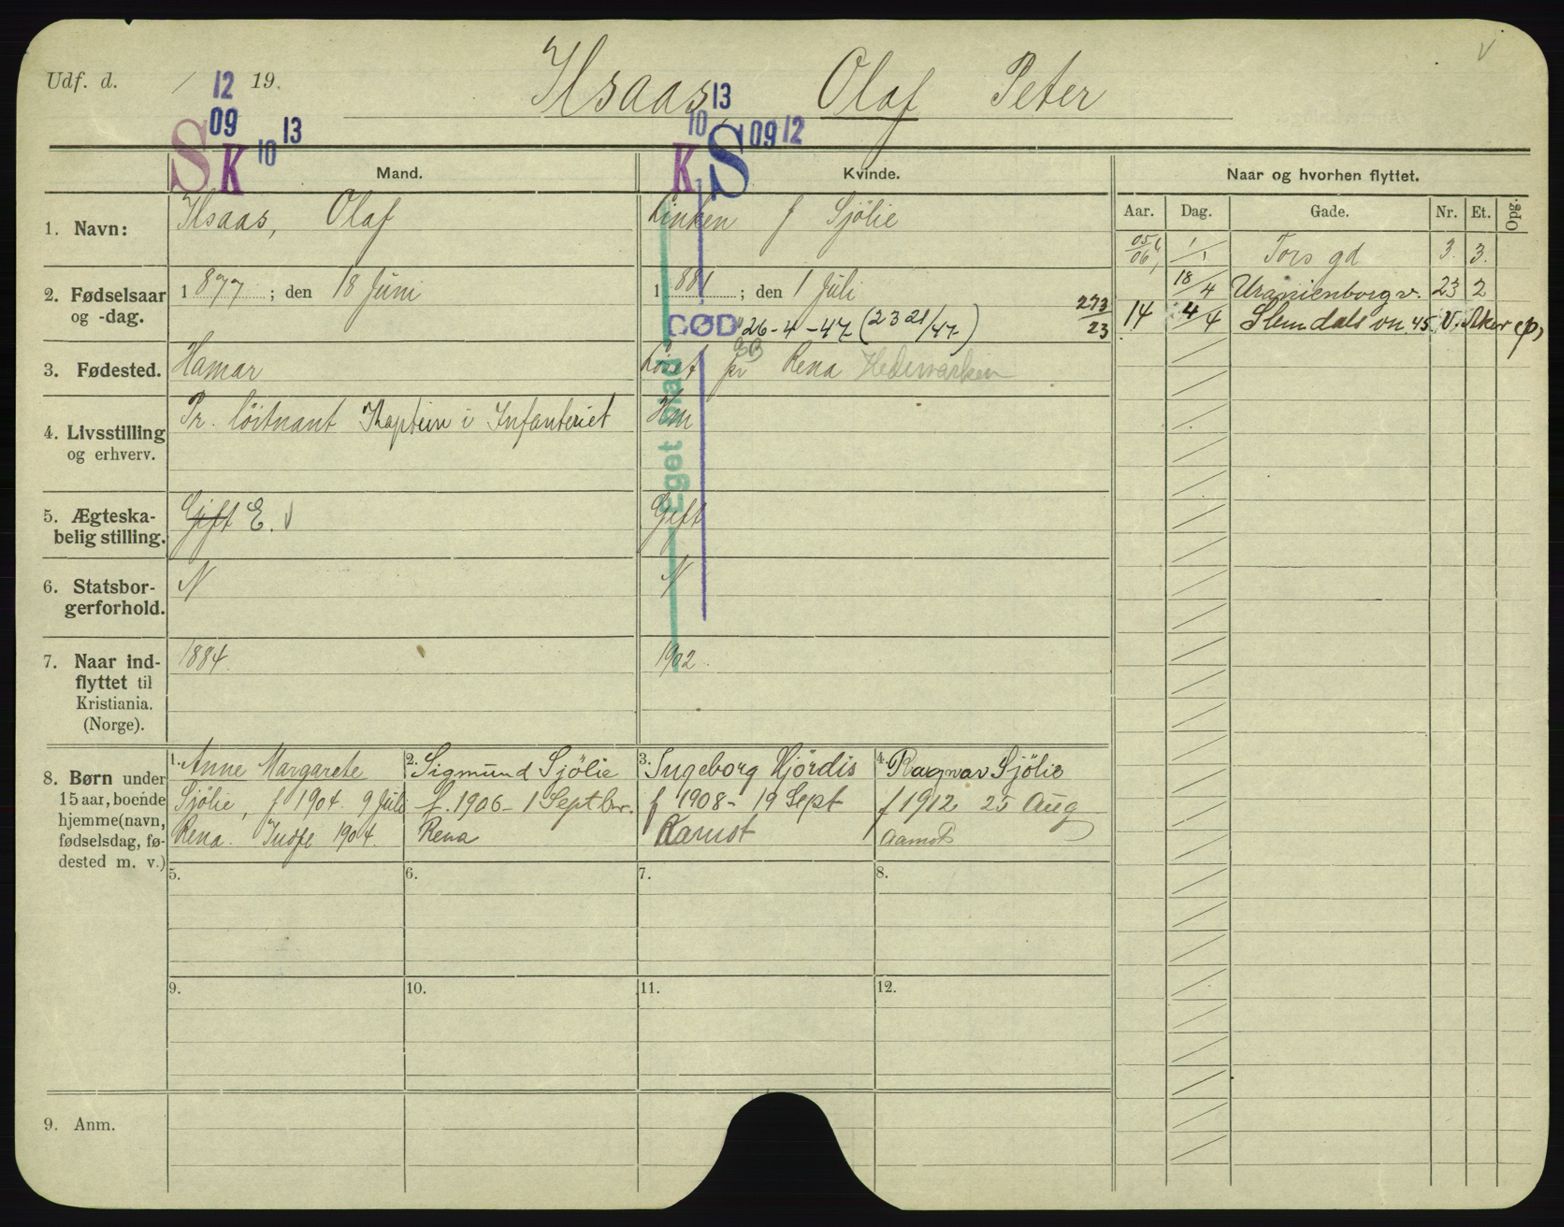 Udf. d. / 12 19.
Ilsaas, Olaf Peter
v
09 13 S K 10
13 10 K S 09 12
Mand.
Kvinde.
Naar og hvorhen flyttet.
1. Navn:
Ilsaas, Olaf
Linken f Sjölie
Aar. Dag. Gade. Nr. Et. Opg.
05/06 1/1 Tors gd 3. 3.
2. Fødselsaar og -dag.
1877 ; den 18 Juni
1881 ; den 1 Juli
DØD 26-4-47 (2321/47)
273/23
18/4 Uranienborgv. 23 2
14 4/4 Slemdals vn 45 V. Aker (p)
3. Fødested.
Hamar
pr Rena Hedemarken
4. Livsstilling
og erhverv.
Pr. löitnant Kaptein i Infanteriet
Hm
Eget blad
5. Ægteska-
belig stilling.
Gift E. v
Gift
6. Statsbor-
gerforhold.
N
N
7. Naar ind-
flyttet til
Kristiania.
(Norge).
1884.
1902.
8. Børn under
15 aar, boende
hjemme (navn,
fødselsdag, fø-
dested m. v.)
1. Anne Margarete
Sjölie, f 1904. 9 Juli
Rena. Indfl 1904.
2. Sigmund Sjölie
f. 1906 - 1 Septbr.
Rena
3. Ingeborg Hjördis
f 1908 - 19 Sept
Aamot
4. Ragnar Sjölie
f 1912 25 Aug
Aamot
5. 6. 7. 8.
9. 10. 11. 12.
9. Anm.